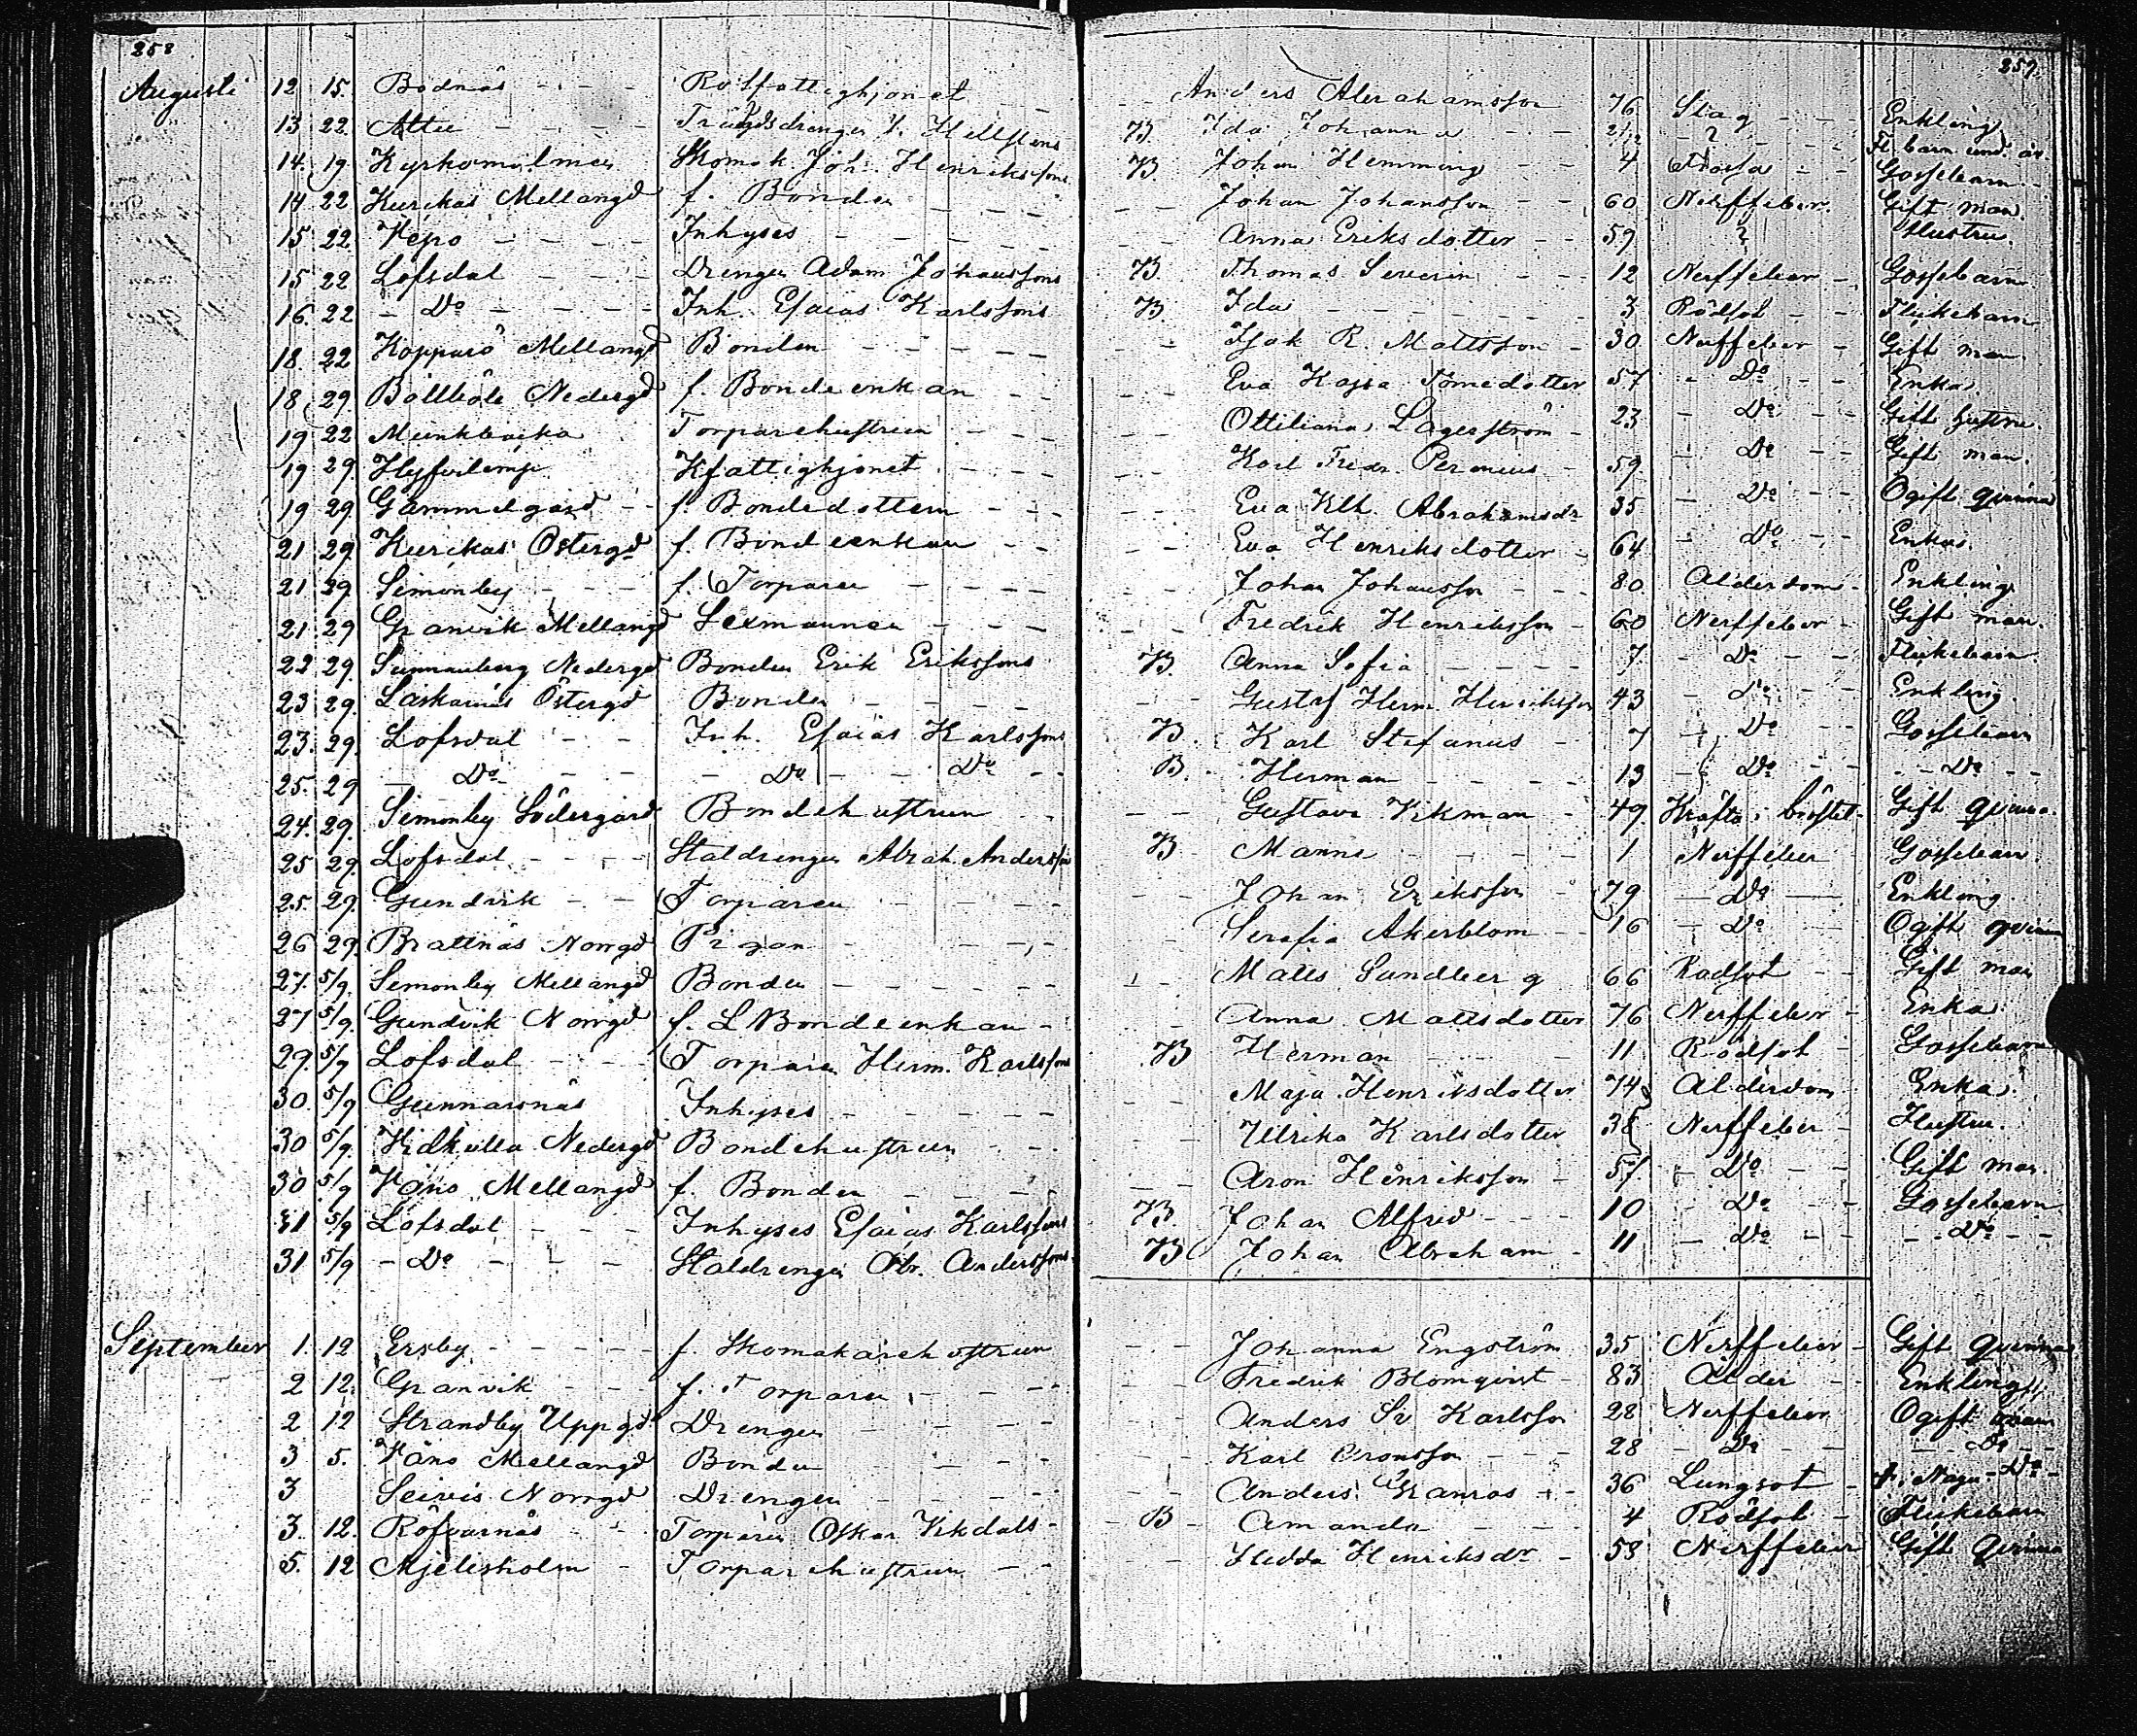 258 257.
Augusti 12 15. Bodnäs - - - Rotfattighjonet - - Anders Abrahamsson 76 Slag - - Enkling
13 22. Attu - - - - B. Ida Johanna - - ? - - Fl. barn und. år.
14. 19. Kyrkomalmen Skomak Joh. Henrikssons B. Johan Hemming - - 4 Gossebarn
14 22 Kurckas Mellangd f. Bonden - - - - - Johan Johansson - - 60 Nerffeber. Gift man.
15 22. - - - - Inhyses - - - - - - Anna Eriksdotter - - 59 ? Hustru.
15 22 Lofsdal - - - Drengen Adam Johanssons B. Thomas Severin - - 12 Nerffeber - Gossebarn
16. 22 - Do - - - - Inh. Esaias Karlssons B. Ida - - - - - 3 Rödsot - - Flickebarn
18. 22 Kopparö Mellangd Bonden - - - - - - - Isak R. Mattsson - 30 Nerffeber - Gift man.
18 29. Böllböle Nedergd f. Bondeenkan - - - - Eva Kajsa 57 - Do - - Enka.
19 22 Munkbacka Torparehustrun - - - - - Ottiliana Lagerström - 23 - Do - - Gift hustru.
19 29. Kfattighjonet - - - - - Karl Fredr. - 59. - Do - - Gift man.
19 29. Gammelgård - - f. Bondedottern - - - - - Eva Abrahamsdr 35 - Do - - Ogift qvinna
21 29 Kurckas Östergd f. Bondeenkan - - - - Eva Henriksdotter - 64 - Do - - Enka.
21 29 Simonby - - - f. Torparen - - - - - - Johan Johansson - - 80 Alderdom - Enkling
21. 29 Granvik Mellangd Sexmannen - - - - - Fredrik Henriksson - 60 Nerffeber - Gift man.
22 29. Sunnanberg Nedergd Bonden Erik Erikssons B. Anna Sofia - - - - 7. - Do - - Flickebarn.
23 29. Östergd Bonden - - - - - - Gustaf Herm. Henriksson 43 - Do - - Enkling.
23. 29. Lofsdal - - Inh. Esaias Karlssons B. Karl Stefanus - 7 - Do - - Gossebarn
25. 29 - Do - - - Do - - Do - - B. Herman - - - - 13 - Do - - - - Do - -
24. 29. Simonby Södergård Bondehustrun - - - - Gustava Ekman - 49. Kräfta i bröstet - Gift qvinna.
25 29. Lofsdal - - - - Staldrengen Abrah. Anderssons B. Manne - - - - 1 Nerffeber Gossebarn.
25. 29. Gundvik - - - Torparen - - - - - - Johan Eriksson - 79 - Do - Enkling.
26 29. Brattnäs Norrgd Pigan - - - - - Serafia Åkerblom - - 16 - Do - Ogift qvinna
27. 5/9. Simonby Mellangd Bonden - - - - - - - Matts Sundberg 66 Rödsot - - Gift man
27 5/9. Gundvik Norrgd f. Bondeenkan - - - Anna Mattsdotter 76 Nerffeber - Enka.
29. 5/9 Lofsdal - - - Torparen Herm. Karlssons B Herman - - - - 11 Rödsot - Gossebarn
30. 5/9 Gunnarsnäs Inhyses - - - - - - Maja Henriksdotter 74 Alderdom Enka.
30 5/9. Nedergd Bondehustrun - - - Ulrika Karlsdotter 38 Nerffeber - Hustru.
30 5/9 Mellangd f. Bonden - - - - - - Aron Henriksson - 57. - Do - - Gift man.
31 5/9 Lofsdal - - - Inhyses Esaias Karlssons B. Johan Alfred - - - 10 - Do - - Gossebarn
31 5/9 - Do - - - Staldrengen Abr. Anderssons B Johan Abraham - 11 - Do - - - Do - -
September 1. 12 Ersby - - - - - f. Skomakarehustrun - - Johanna Engström 35 Nerffeber - Gift qvinna
2 12. Granvik - - f. Torparen - - - - - Fredrik Blomqvist - 83 Ålder - Enkling
2 12 Strandby Uppgd Drengen - - - - - Anders Karlsson 28 Nerffeber Ogift man
3 5. Mellangd Bonden - - - - - Karl Aronsson - - - 28 - Do - - Do - -
3 Norrgd Drengen - - - - - - Anders - - 36 Lungsot - - Do -
3. 12. Röfvarnäs - - Torparen Oskar - B - Amanda - - - 4 Rödsot - Flickebarn
5. 12 Mjelisholm - Torparehustrun - - - Hedda Henriksdr - 58 Nerffeber Gift qvinna